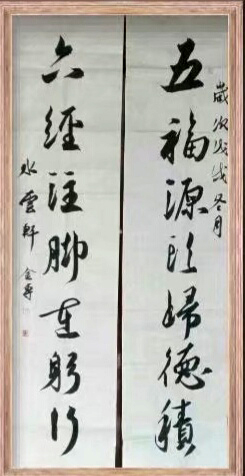 歲次戊戌冬月
五福源頭歸德積
六經注脚在躬行
水雲軒